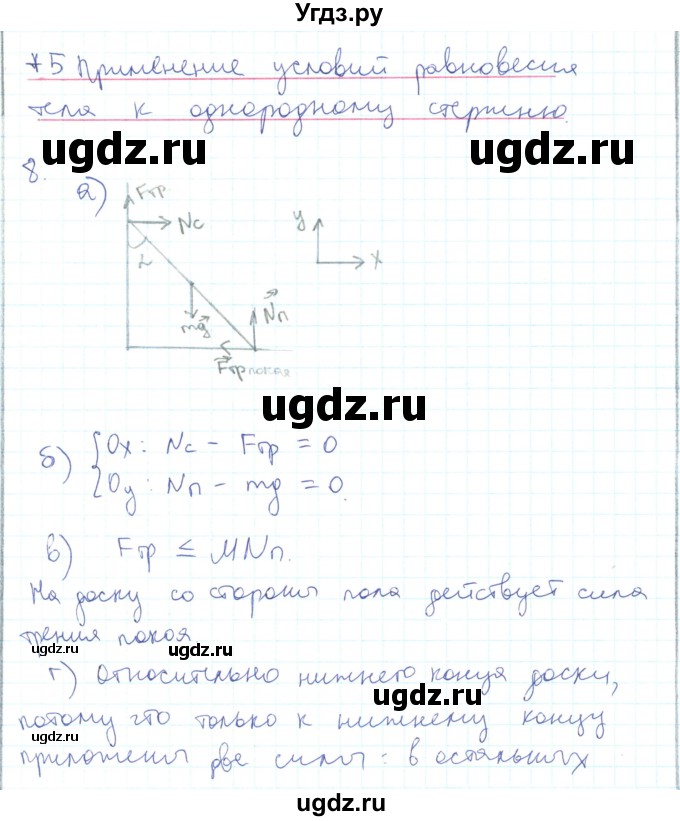 Угдз.ру
75 Применение условий равновесия
тела к однородному стержню.
ugdz.ru ugdz.ru
8.
а) Fтр
Nс
y
x
L
mg
Nп
Fтр покоя
ugdz.ru
б) { Ox: Nс - Fтр = 0
Oy: Nп - mg = 0.
в) Fтр ≤ MNп.
На доску со стороны пола действует сила
трения покоя
ugdz.ru ugdz.ru
г) Относительно нижнего конца доски,
ugdz.ru
потому что только к нижнему концу
ugdz.ru
приложены две силы: в остальных
ugdz.ru